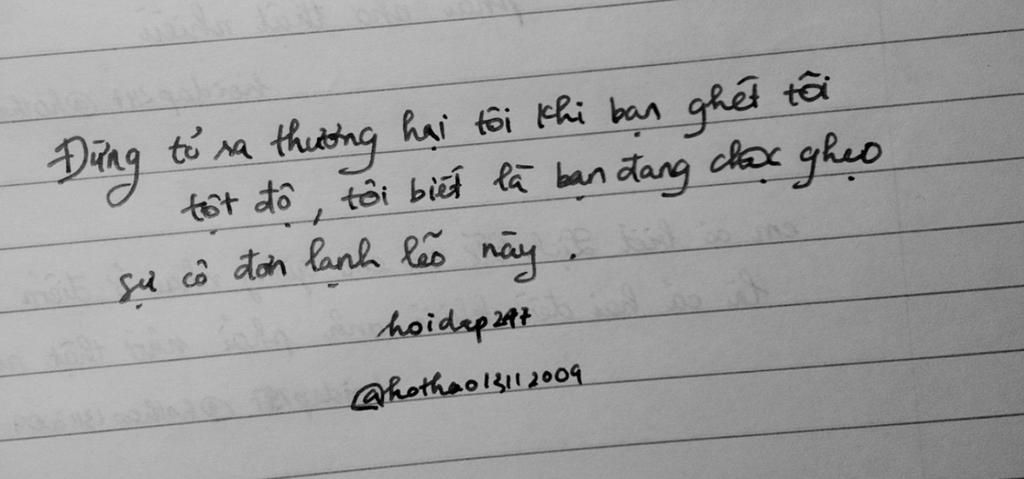 Đừng tỏ ra thương hại tôi khi bạn ghét tôi
tột độ, tôi biết là bạn đang chọc ghẹo
sự cô đơn lạnh lẽo này.
hoidap247
@hothao13112009